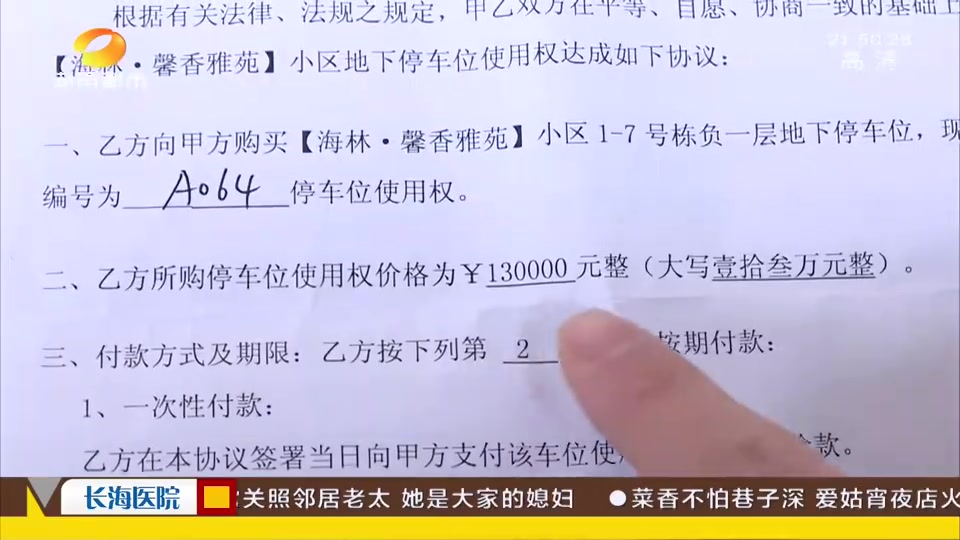 根据有关法律、法规之规定，甲乙双方在平等、自愿、协商一致的基础上
【海林·馨香雅苑】小区地下停车位使用权达成如下协议：
21:50:28
高清
一、乙方向甲方购买【海林·馨香雅苑】小区1-7号栋负一层地下停车位，现
编号为 A064 停车位使用权。
二、乙方所购停车位使用权价格为￥130000元整（大写壹拾叁万元整）。
三、付款方式及期限：乙方按下列第 2 按期付款：
1、一次性付款：
乙方在本协议签署当日向甲方支付该车位使 款。
长海医院
关照邻居老太 她是大家的媳妇 ●菜香不怕巷子深 爱姑宵夜店火